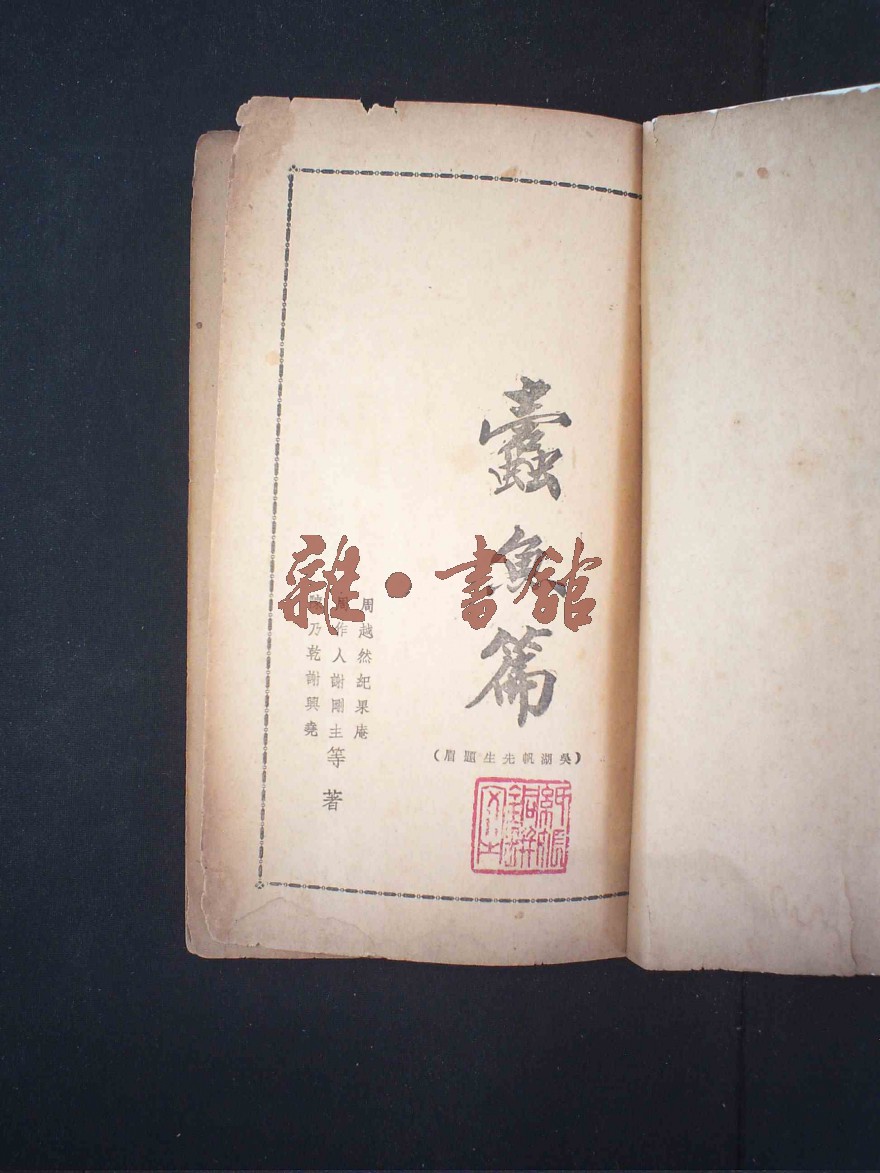 蠹魚篇
(吳湖帆先生題眉)
周越然紀果庵
周作人謝剛主
陳乃乾謝興堯
等著
紙帳
銅瓶
雜·書館